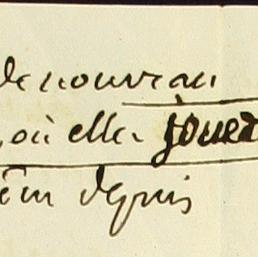 de nouveau
, où elle jouer
ên depuis